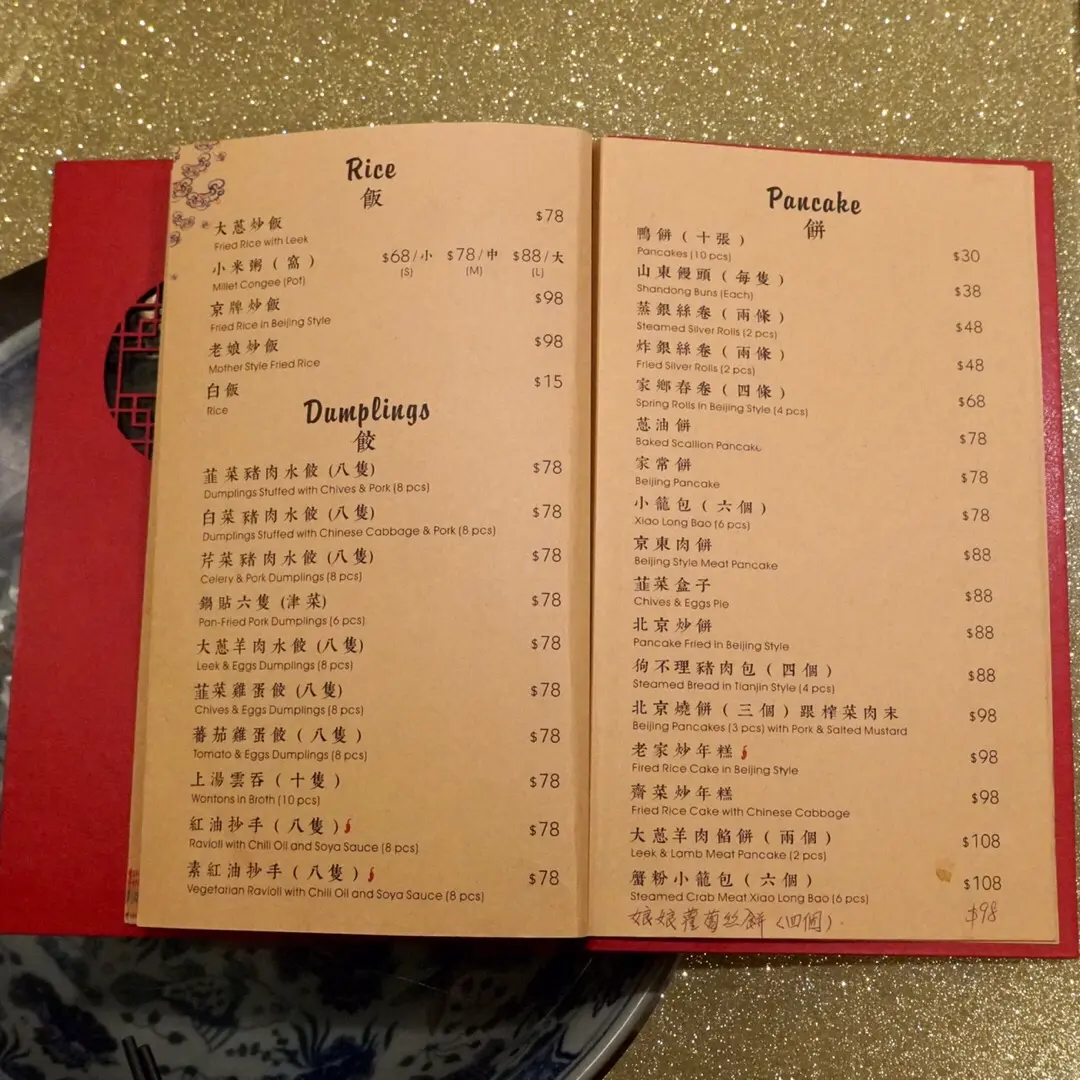 Rice
飯
大蔥炒飯 $78
Fried Rice with Leek
小米粥（窩） $68/小 $78/中 $88/大
Millet Congee (Pot) (S) (M) (L)
京牌炒飯 $98
Fried Rice in Beijing Style
老娘炒飯 $98
Mother Style Fried Rice
白飯 $15
Rice
Dumplings
餃
韮菜豬肉水餃 (八隻) $78
Dumplings Stuffed with Chives & Pork (8 pcs)
白菜豬肉水餃 (八隻) $78
Dumplings Stuffed with Chinese Cabbage & Pork (8 pcs)
芹菜豬肉水餃 (八隻) $78
Celery & Pork Dumplings (8 pcs)
鍋貼六隻 (津菜) $78
Pan-Fried Pork Dumplings (6 pcs)
大蔥羊肉水餃 (八隻) $78
Leek & Eggs Dumplings (8 pcs)
韮菜雞蛋餃 (八隻) $78
Chives & Eggs Dumplings (8 pcs)
蕃茄雞蛋餃（八隻） $78
Tomato & Eggs Dumplings (8 pcs)
上湯雲吞（十隻） $78
Wontons in Broth (10 pcs)
紅油抄手（八隻） $78
Ravioli with Chili Oil and Soya Sauce (8 pcs)
素紅油抄手（八隻） $78
Vegetarian Ravioli with Chili Oil and Soya Sauce (8 pcs)
Pancake
餅
鴨餅（十張） $30
Pancakes (10 pcs)
山東饅頭（每隻） $38
Shandong Buns (Each)
蒸銀絲卷（兩條） $48
Steamed Silver Rolls (2 pcs)
炸銀絲卷（兩條） $48
Fried Silver Rolls (2 pcs)
家鄉春卷（四條） $68
Spring Rolls in Beijing Style (4 pcs)
蔥油餅 $78
Baked Scallion Pancake
家常餅 $78
Beijing Pancake
小籠包（六個） $78
Xiao Long Bao (6 pcs)
京東肉餅 $88
Beijing Style Meat Pancake
韮菜盒子 $88
Chives & Eggs Pie
北京炒餅 $88
Pancake Fried in Beijing Style
狗不理豬肉包（四個） $88
Steamed Bread in Tianjin Style (4 pcs)
北京燒餅（三個）跟榨菜肉末 $98
Beijing Pancakes (3 pcs) with Pork & Salted Mustard
老家炒年糕 $98
Fired Rice Cake in Beijing Style
齋菜炒年糕 $98
Fried Rice Cake with Chinese Cabbage
大蔥羊肉餡餅（兩個） $108
Leek & Lamb Meat Pancake (2 pcs)
蟹粉小籠包（六個） $108
Steamed Crab Meat Xiao Long Bao (6 pcs)
娘娘蘿蔔絲餅（四個） $98